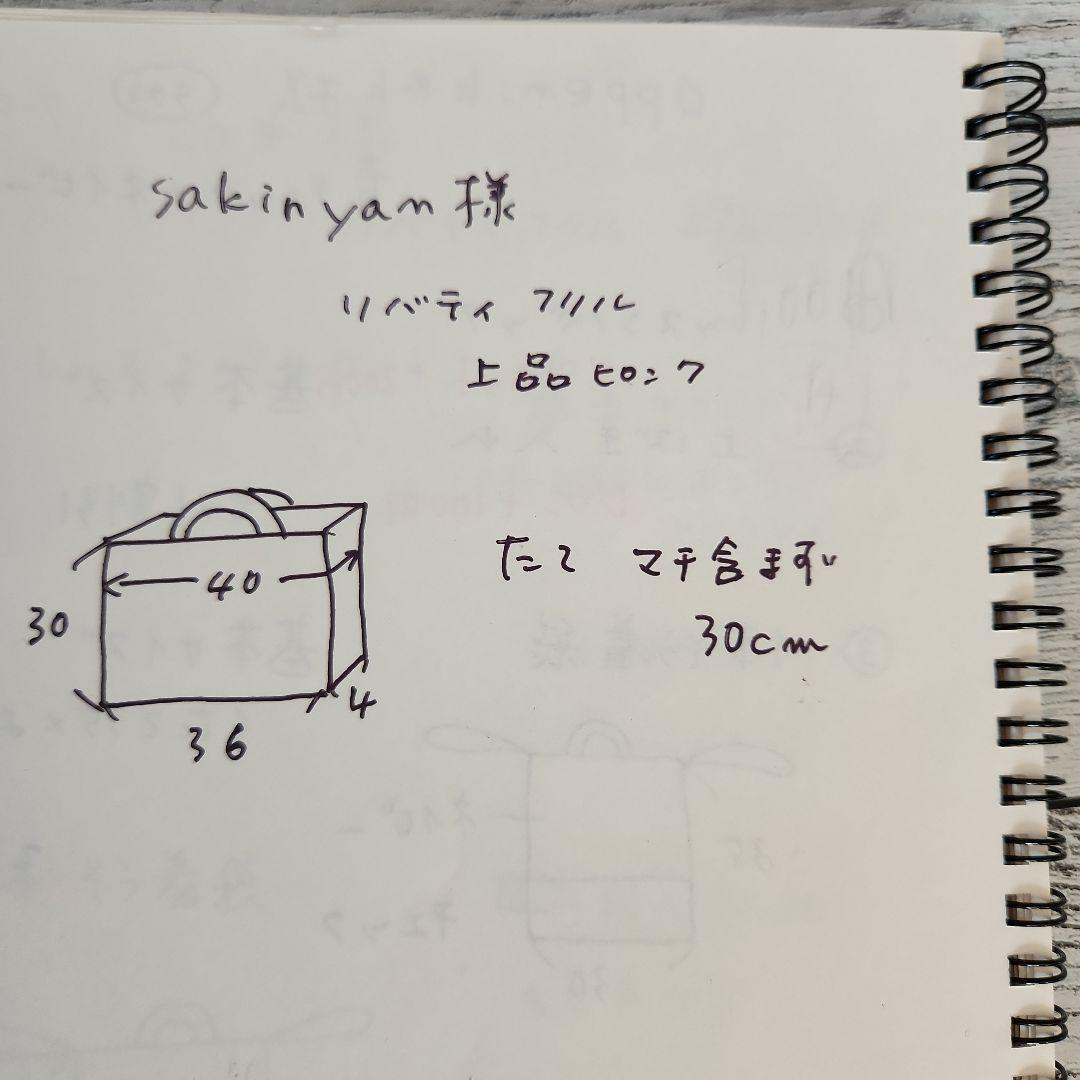 sakinyan様
リバティ フリル
上品ピンク
40
30
4
36
たて マチ含まずに
30cm